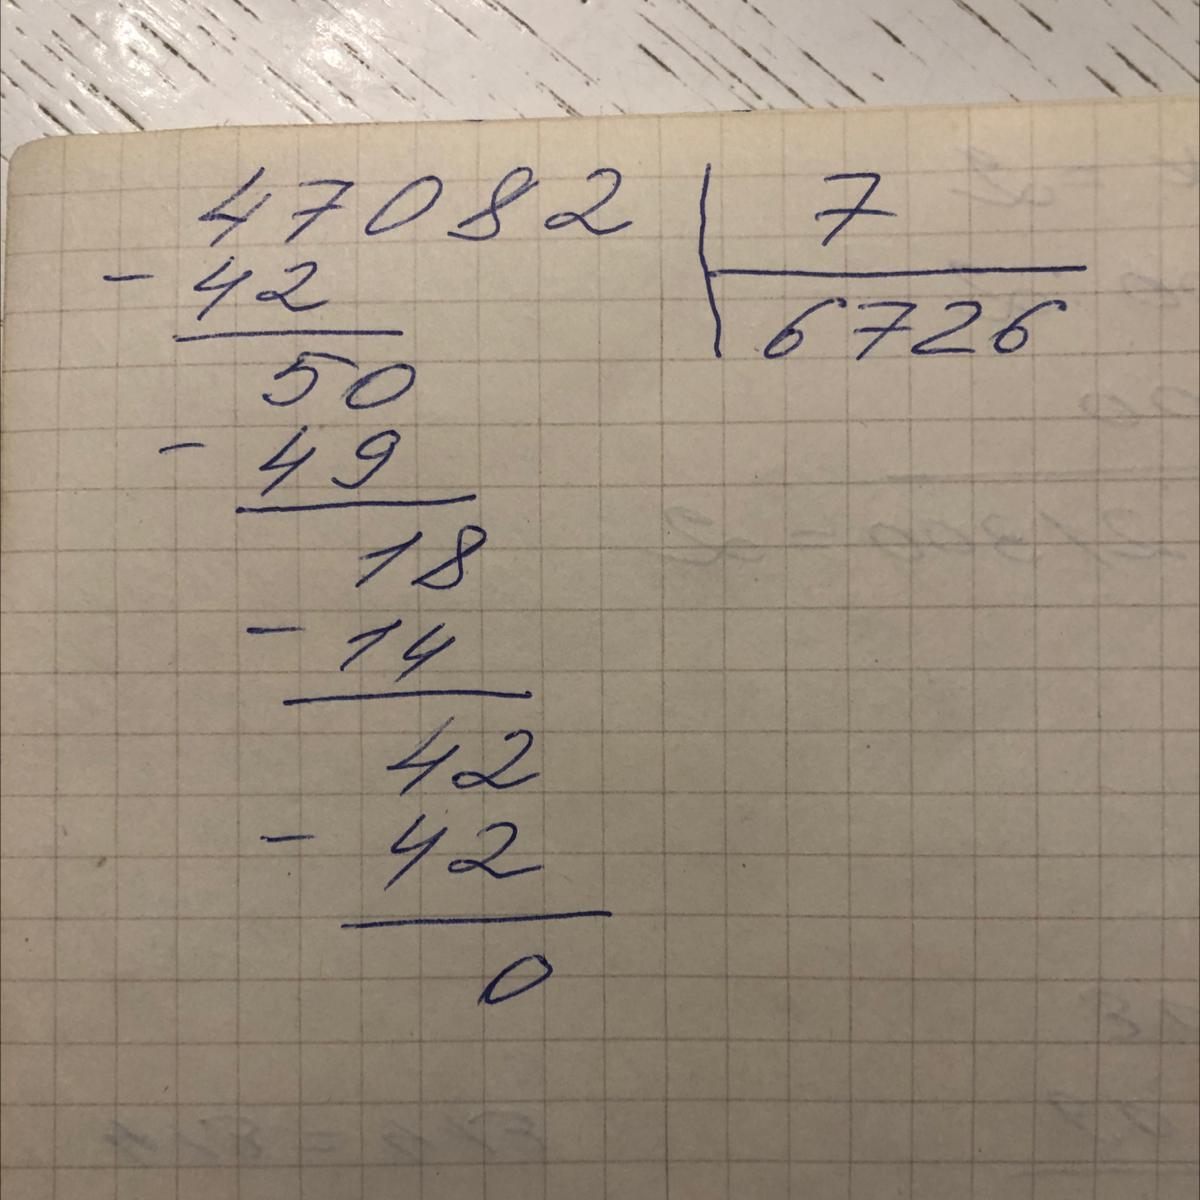 47082 | 7
- 42 6726
50
- 49
18
- 14
42
- 42
0